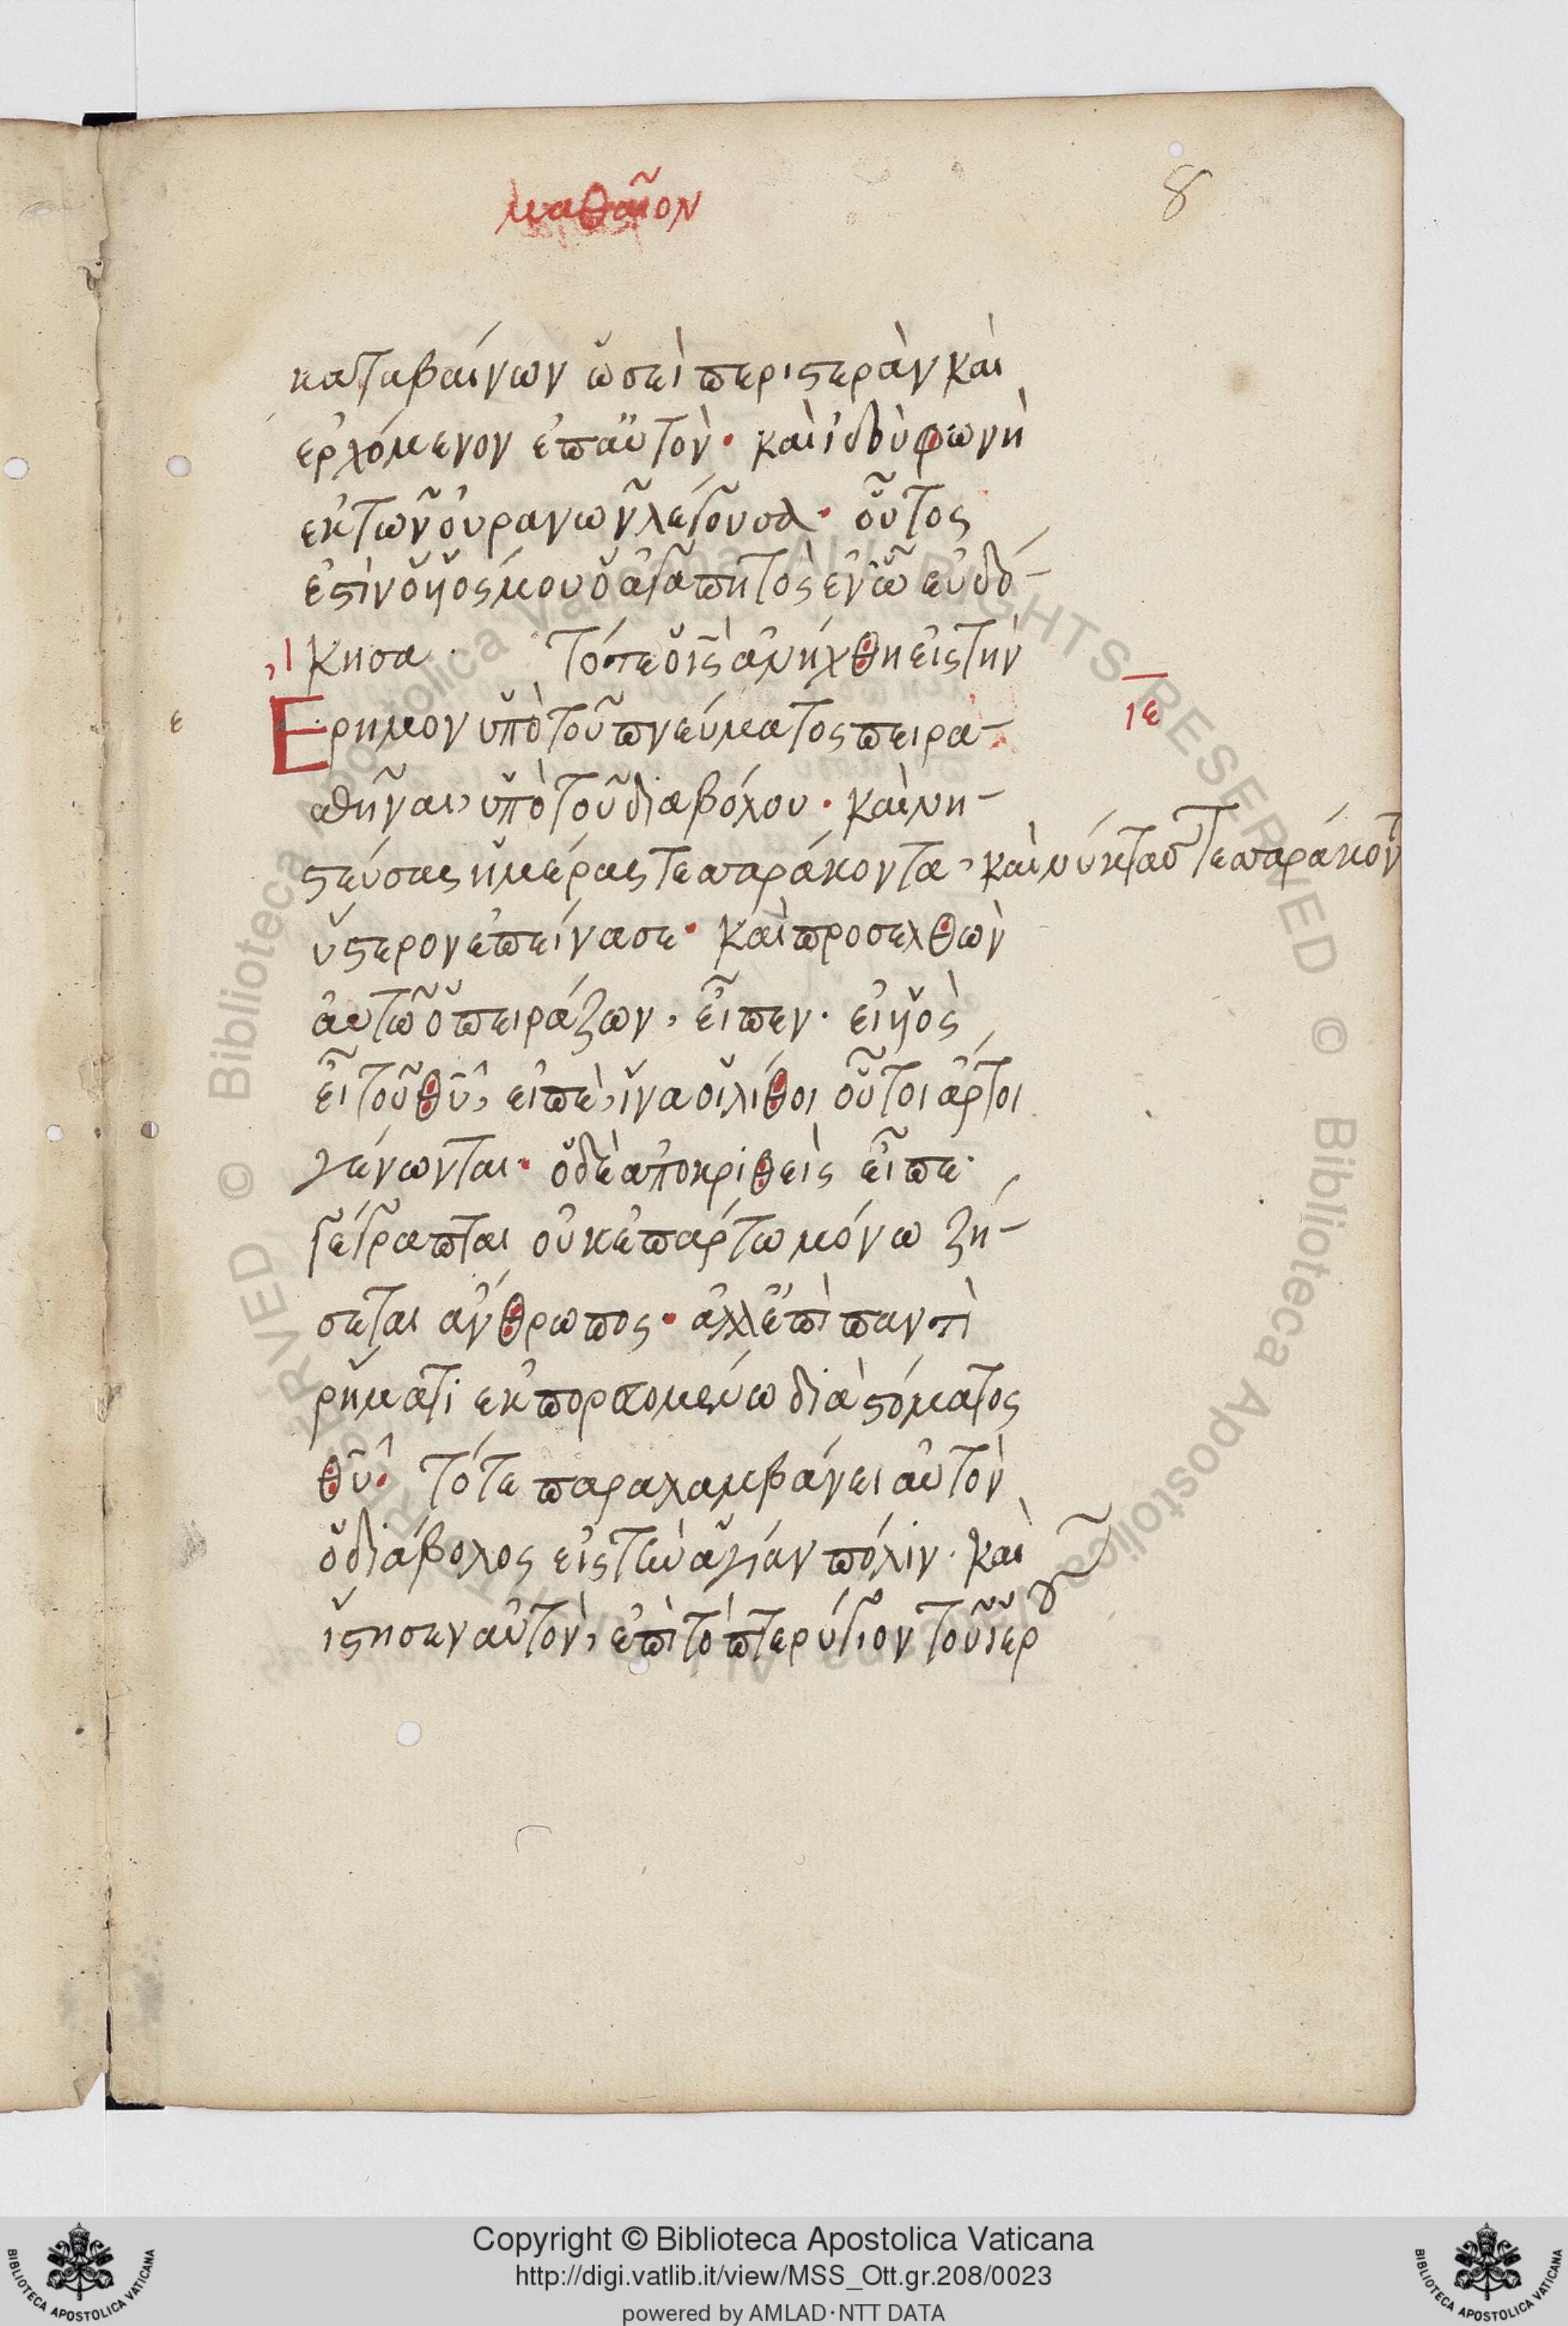 μαθαῖον
8
καταβαίνων ὡσεὶ περιστερὰν καὶ
ἐρχόμενον ἐπαὐτὸν· καὶ ἰδοὺ φωνὴ
ἐκ τῶν οὐρανῶν λέγουσα· οὗτος
ἐστὶν ὁ υἱός μου ὁ ἀγαπητὸς ἐν ὧ εὐδό-
κησα. Τότε ὁ ις̄ ἀνήχθη εἰς τὴν
Ερημον ὑπὸ τοῦ πνεύματος πειρα-
ε
ιε
σθῆναι, ὑπὸ τοῦ διαβόλου· καὶ νη-
στεύσας ἡμέρας τεσσαράκοντα, καὶ νύκτας τεσσαράκοντ
ὕστερον ἐπείνασε· καὶ προσελθὼν
ἀυτῶ ὁ πειράζων, εἶπεν· εἰ υἱὸς
εἶ τοῦ θῦ, εἰπὲ, ἵνα οἱ λίθοι οὗτοι ἄρτοι
γένωνται· ὁ δὲ ἀποκριθεὶς εἶπε·
γέγραπται οὐκ ἐπάρτω μόνω ζή-
σεται ἄνθρωπος· ἀλλ' ἐπὶ παντὶ
ῥήματι ἐκπορευομένω διὰ στόματος
θῦ· Τότε παραλαμβάνει αὐτὸν
ὁ διάβολος εἰς τὴν ἁγίαν πόλιν· καὶ
ἵστησεν αὐτὸν, ἐπὶ τὸ πτερύγιον τοῦ ἱεροῦ
Copyright © Biblioteca Apostolica Vaticana
http://digi.vatlib.it/view/MSS_Ott.gr.208/0023
powered by AMLAD·NTT DATA